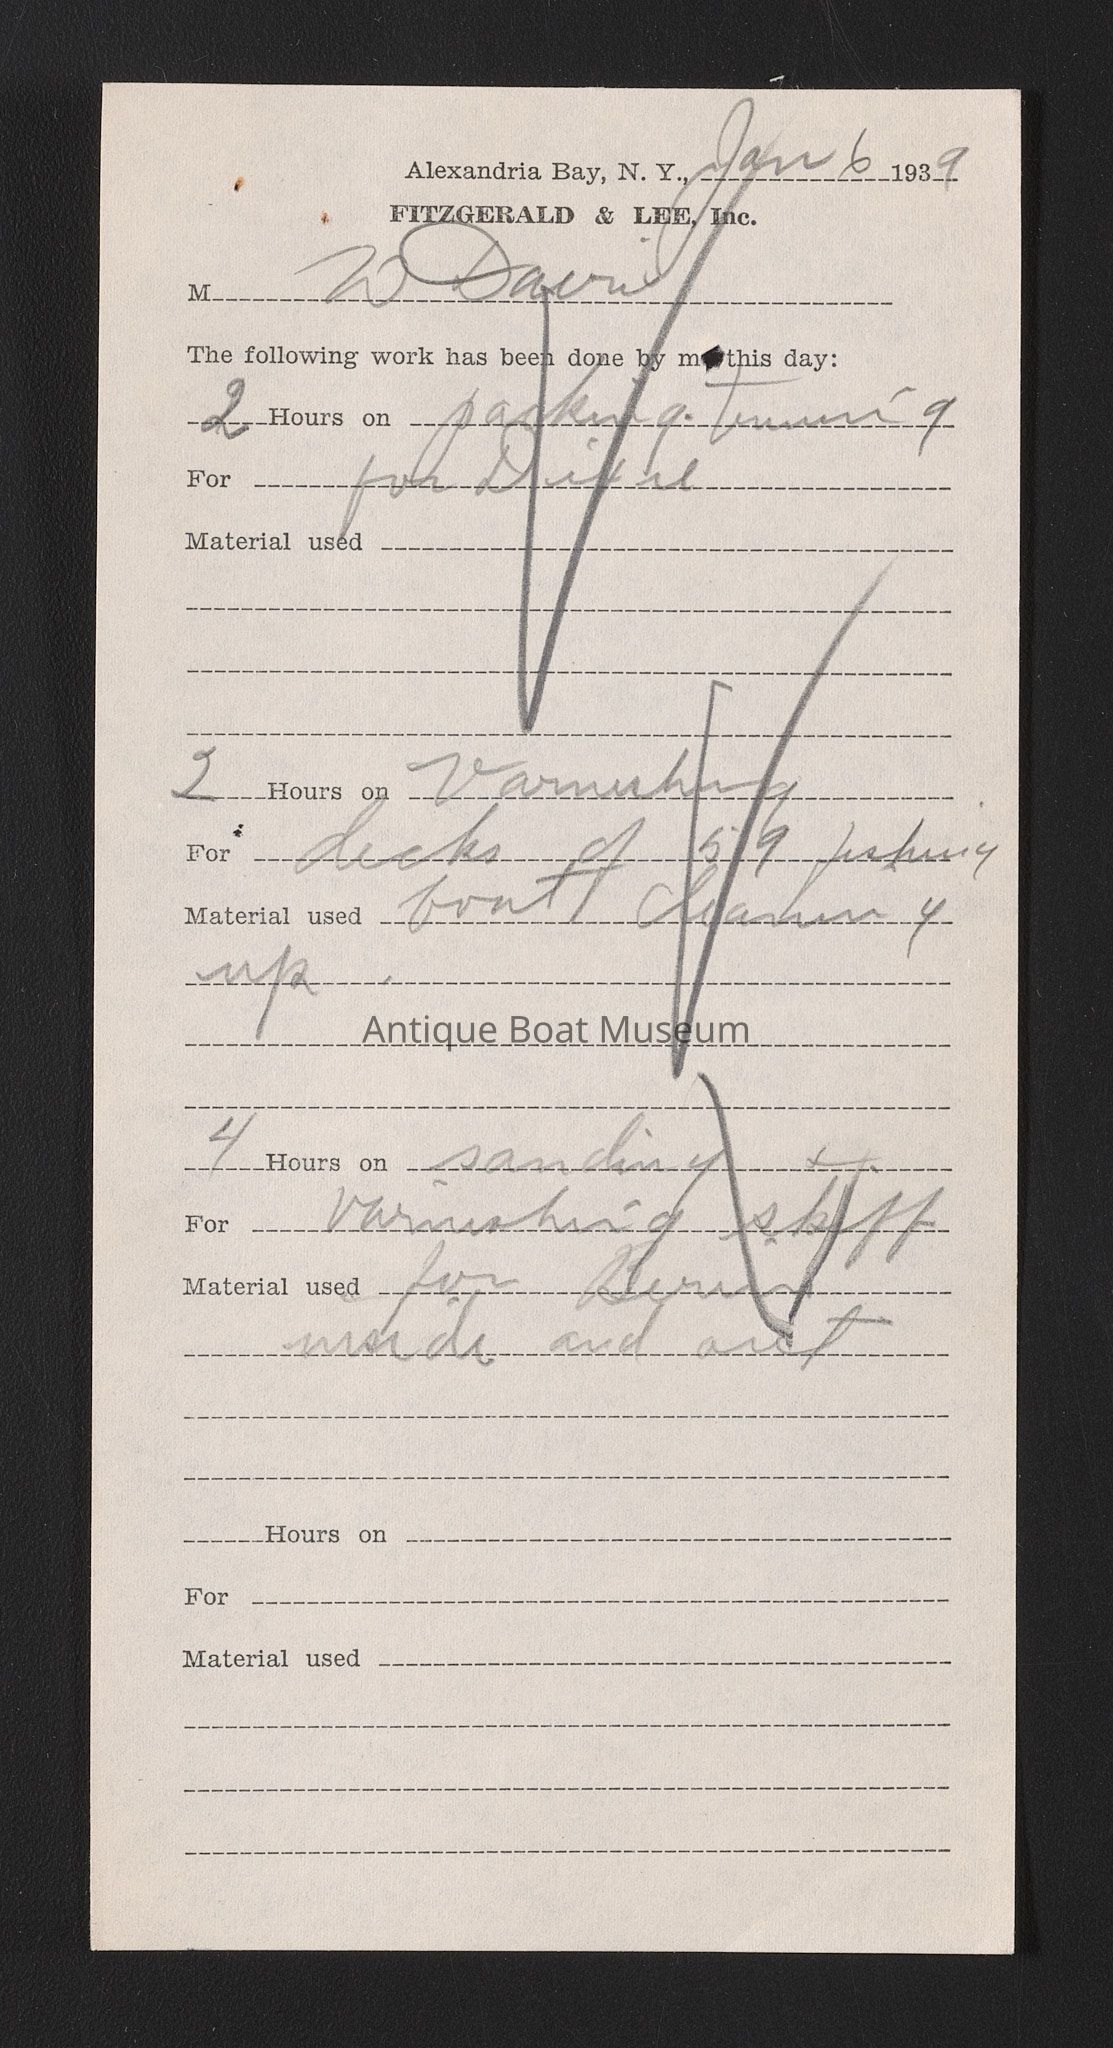 Alexandria Bay, N. Y., Jan 6 1939
FITZGERALD & LEE, Inc.
M W
The following work has been done by me this day:
2 Hours on packing
For for
Material used
2 Hours on Varnishing
For decks of 59 fishing
Material used boat Cleaning
up.
Antique Boat Museum
4 Hours on sanding +
For varnishing skiff
Material used for
inside and out
Hours on
For
Material used